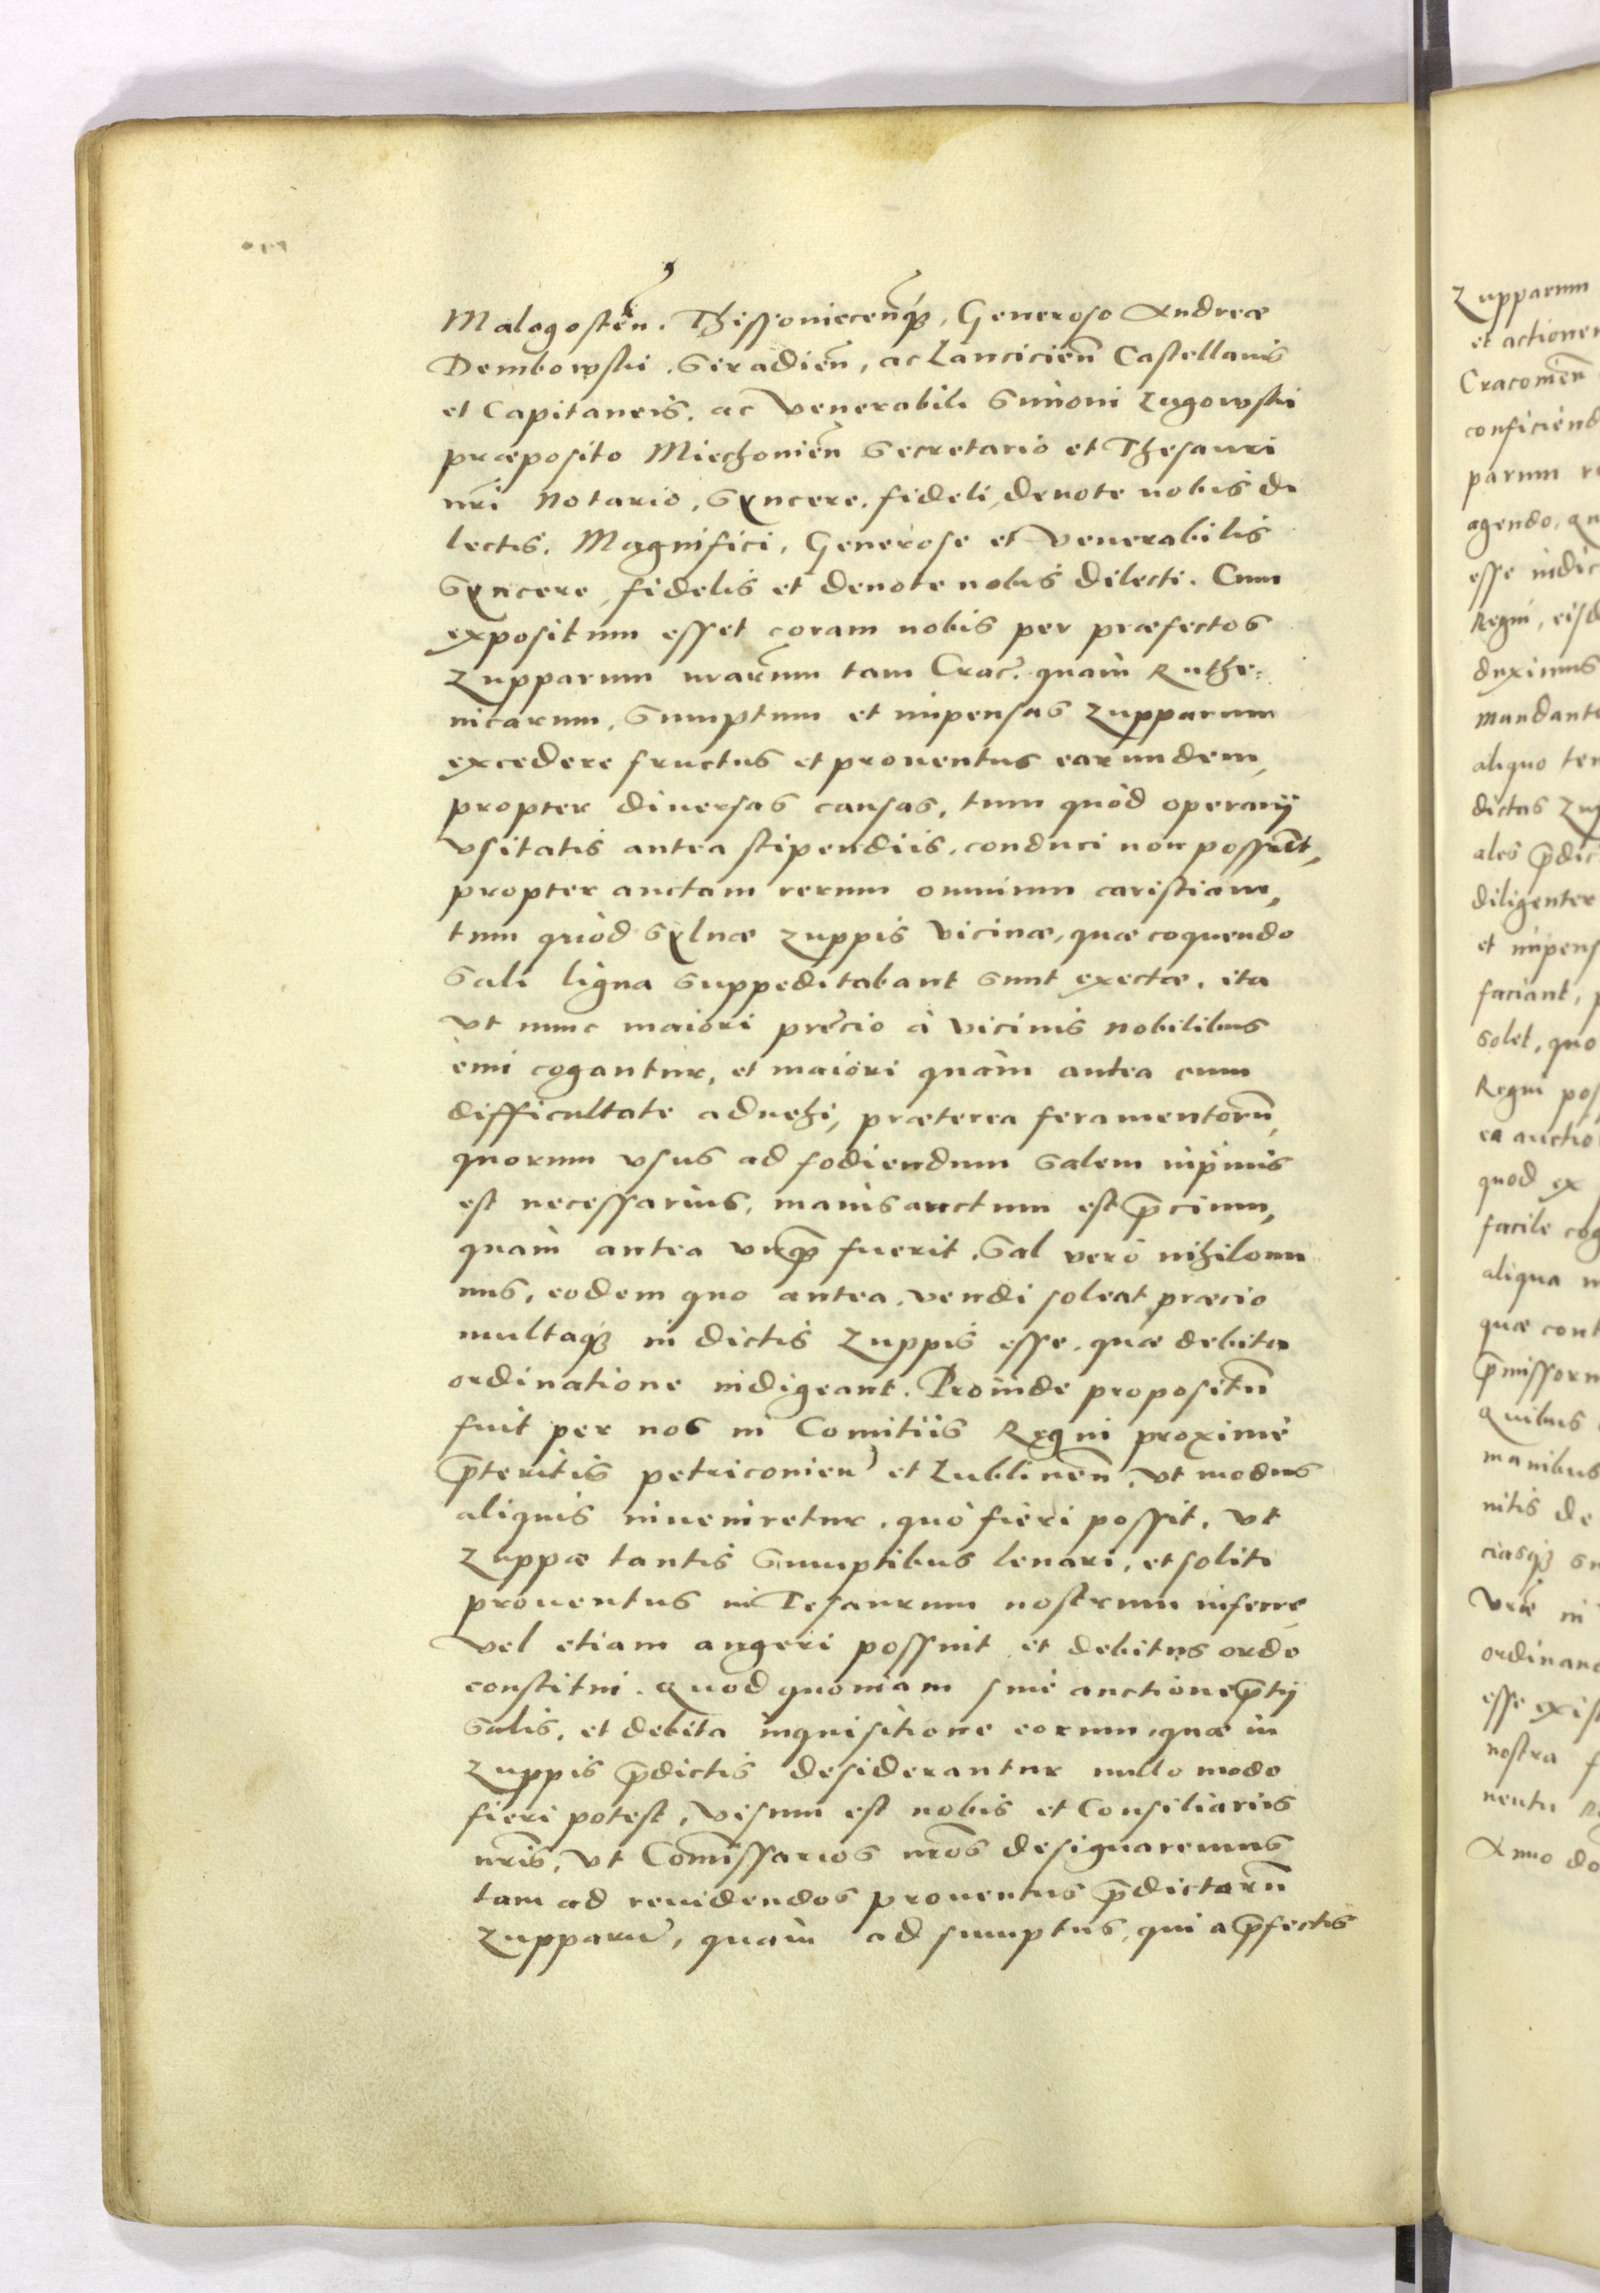 Malogosten̄. Thissoniecen̄q₃, Generoso Andreæ
Dembowski. Siradien̄, ac Lancicien̄ Castellanis
et Capitaneis. ac Venerabili Simoni Lugowski
præposito Miechonien̄ Secretario et Thesauri
nr̄i Notario, Syncere. fideli, deuote nobis di
lectis. Magnifici, Generose et Venerabilis
Syncere, fidelis et deuote nobis dilecti. Cum
expositum esset coram nobis per præfectos
Zupparum nrārum tam Crac̄. quàm Ruthe=
nicarum, Sumptum et impensas Zupparum
excedere fructus et prouentus earundem,
propter diuersas causas, tum quòd operarij
vsitatis antea stipendiis, conduci non possūt,
propter auctam rerum omnium caristiam,
tum quòd Syluæ zuppis vicinæ, quæ coquendo
Sali ligna suppeditabant sunt exectæ. ita
vt nunc maiori precio à vicinis nobilibus
emi cogantur, et maiori quàm antea cum
difficultate aduehi, præterea feramentorū,
quorum vsus ad fodiendum Salem inp̄imis
est necessarius, maius auctum est p̄cium,
quàm antea vnq̄ fuerit. Sal verò nihilomi
nus, eodem quo antea, vendi soleat præcio
multaq₃ in dictis Zuppis esse. quæ debita
ordinatione indigeant. Proinde propositū
fuit per nos in Comitiis Regni proximè
p̄teritis petriconien̄ et Lublinen̄. vt modus
aliquis inueniretur. quò fieri possit. vt
Zuppæ tantis Sumptibus leuari, et soliti
prouentus in Tesaurum nostrum inferre,
vel etiam augeri possint et debitus ordo
constitui. Quod quoniam sine auctione p̄tij
Salis, et debita inquisitione eorum, quæ in
Zuppis p̄dictis desiderantur nullo modo
fieri potest, visum est nobis et Consiliariis
nr̄is, vt Com̄issarios nr̄os designaremus
tam ad reuidendos prouentus p̄dictarū
Zupparū, quàm ad sumptus, qui a p̄fectis
Zupparum
et actionem
Cracouien̄
conficiend
agendo, qu
esse indic
Regni, eisd
duximus
aliquo tem
dictas Zup
ales p̄dic
diligenter
et impens
faciant, p
solet, quo
Regni pos
ea auctio
quod ex
facile cog
aliqua
quæ cont
p̄missoru
Quibus
manibus
nitis de
ciasq₃ su
ordinand
esse exist
nostra f
Anno do